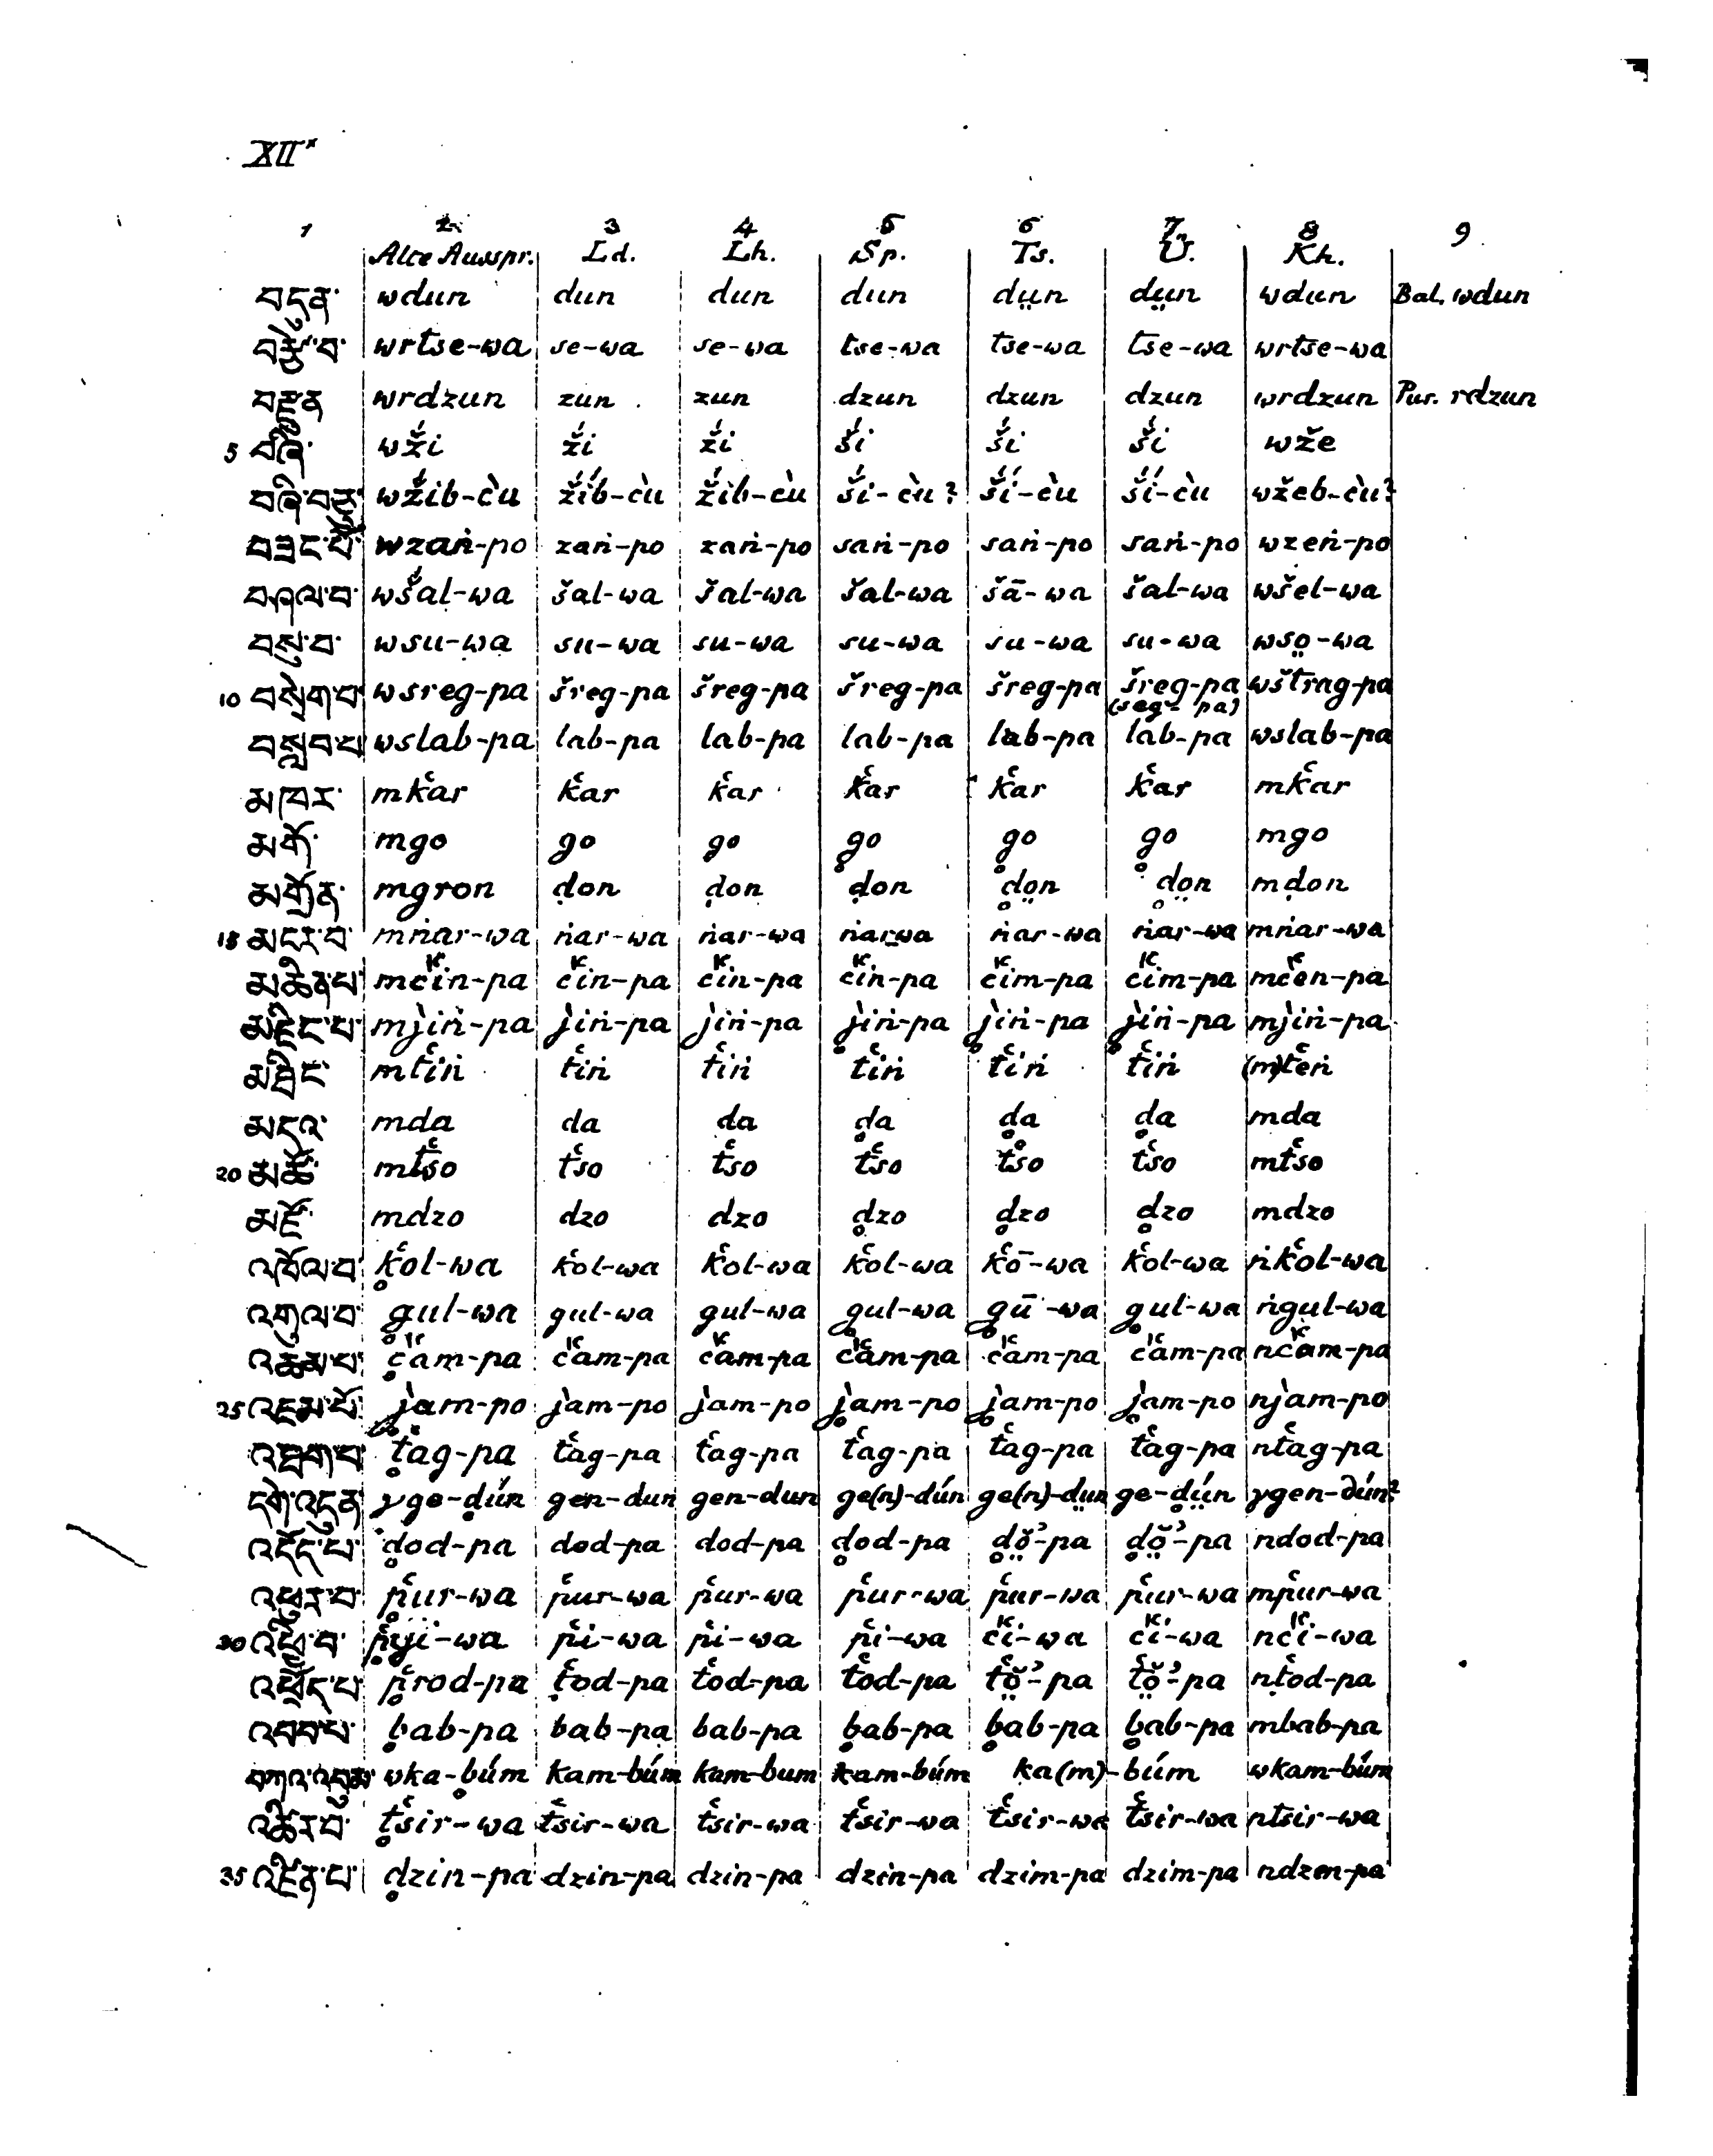 XIIˣ
1 2 3 4 5 6 7 8 9
Alte Ausspr. Ld. Lh. Sp. Ts. Ü. Kh.
བདུན་ wdun dun dun dun dṳn dṳn wdun Bal. wdun
བརྩེ་བ་ wrtse-wa se-wa se-wa tse-wa tse-wa tse-wa wrtse-wa
བརྫུན wrdzun zun zun dzun dzun dzun wrdzun Pur. rdzun
5 བཞི་ wž́i ž́i ž́i š́i š́i š́i wže
བཞི་བཅུ་ wž́ib-c̀u ž́ib-c̀u ž́ib-c̀u š́i-c̀u? š́i-c̀u š́i-c̀u wžeb-c̀u?
བཟང་པོ་ wzaṅ-po zaṅ-po zaṅ-po saṅ-po saṅ-po saṅ-po wzeṅ-po
བཤལ་བ་ wš́al-wa šal-wa šal-wa šal-wa šā-wa šal-wa wšel-wa
བསུ་བ་ wsu-wa su-wa su-wa su-wa su-wa su-wa wso̤-wa
10 བསྲེག་པ་ wsreg-pa šreg-pa šreg-pa šreg-pa šreg-pa šreg-pa wštrag-pa
(seg-pa)
བསླབ་པ wslab-pa lab-pa lab-pa lab-pa lab-pa lab-pa wslab-pa
མཁར་ mk̔ar k̔ar k̔ar k̔ar k̔ar k̔ar mk̔ar
མགོ་ mgo go go g̥o g̥o g̥o mgo
མགྲོན་ mgron ḍon ḍon ḍon ḍ̥o̤n ḍ̥o̤n mḍon
15 མངར་བ་ mṅar-wa ṅar-wa ṅar-wa ṅar-wa ṅar-wa ṅar-wa mṅar-wa
མཆིན་པ་ mc̀̔in-pa c̀̔in-pa c̀̔in-pa c̀̔in-pa c̀̔im-pa c̀̔im-pa mc̀̔en-pa
མཇིང་པ་ mj̀iṅ-pa j̀iṅ-pa j̀iṅ-pa j̥̀iṅ-pa j̥̀iṅ-pa j̥̀iṅ-pa mj̀iṅ-pa
མཐིང་ mt̔iṅ t̔iṅ t̔iṅ t̔iṅ t̔iṅ t̔iṅ (m)t̔eṅ
མདའ་ mda da da d̥a d̥a d̥a mda
20 མཚོ་ mt̔so t̔so t̔so t̔so t̔so t̔so mt̔so
མཛོ་ mdzo dzo dzo d̥zo d̥zo d̥zo mdzo
འཁོལ་བ་ k̥̔ol-wa k̔ol-wa k̔ol-wa k̔ol-wa k̔ō-wa k̔ol-wa ṅk̔ol-wa
འགུལ་བ་ g̥ul-wa gul-wa gul-wa g̥ul-wa g̥ū-wa g̥ul-wa ṅgul-wa
འཆམ་པ་ c̥̀̔am-pa c̀̔am-pa c̀̔am-pa c̀̔am-pa c̀̔am-pa c̀̔am-pa nc̀̔am-pa
25 འཇམ་པོ་ j̥̀am-po j̀am-po j̀am-po j̥̀am-po j̥̀am-po j̥̀am-po nj̀am-po
འཐག་པ་ t̥̔ag-pa t̔ag-pa t̔ag-pa t̔ag-pa t̔ag-pa t̔ag-pa nt̔ag-pa
དགེ་འདུན་ γge-d̥ún gen-dun gen-dun ge(n)-dún ge(n)-dṳn ge-d̥ṳ́n γgen-dún?
འདོད་པ་ d̥od-pa dod-pa dod-pa d̥od-pa d̥ŏ̤ʾ-pa d̥ŏ̤ʾ-pa ndod-pa
འཕུར་བ་ p̥̔ur-wa p̔ur-wa p̔ur-wa p̔ur-wa p̔ur-wa p̔ur-wa mp̔ur-wa
30 འཕྱི་བ་ p̥̔yi-wa p̔i-wa p̔i-wa p̔i-wa c̀̔i-wa c̀̔i-wa nc̀̔i-wa
འཕྲོད་པ་ p̥̔rod-pa ṭ̔od-pa ṭ̔od-pa ṭ̔od-pa ṭ̔ŏ̤ʾ-pa ṭ̔ŏ̤ʾ-pa nṭ̔od-pa
འབབ་པ་ b̥ab-pa bab-pa bab-pa b̥ab-pa b̥ab-pa b̥ab-pa mbab-pa
བཀའ་འབུམ་ wka-b̥úm kam-búm kam-bum kam-búm ka(m)-búm wkam-búm
འཚིར་བ་ t̥̔sir-wa t̔sir-wa t̔sir-wa t̔sir-wa t̔sir-wa t̔sir-wa ntsir-wa
35 འཛིན་པ་ d̥zin-pa dzin-pa dzin-pa dzin-pa dzim-pa dzim-pa ndzen-pa